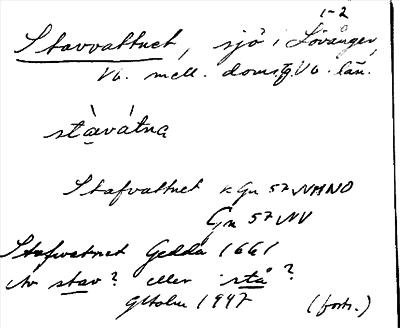 1-2
Stavvattnet, sjö i Lövånger,
Vb. mell. doms. Vb. län.
stàvátnα
Stafvattnet kGn 57 VVHNO
Gn 57 VV
Stafwatnet Gedda 1661
Av stav? eller stå?
GHolm 1947 (forts.)